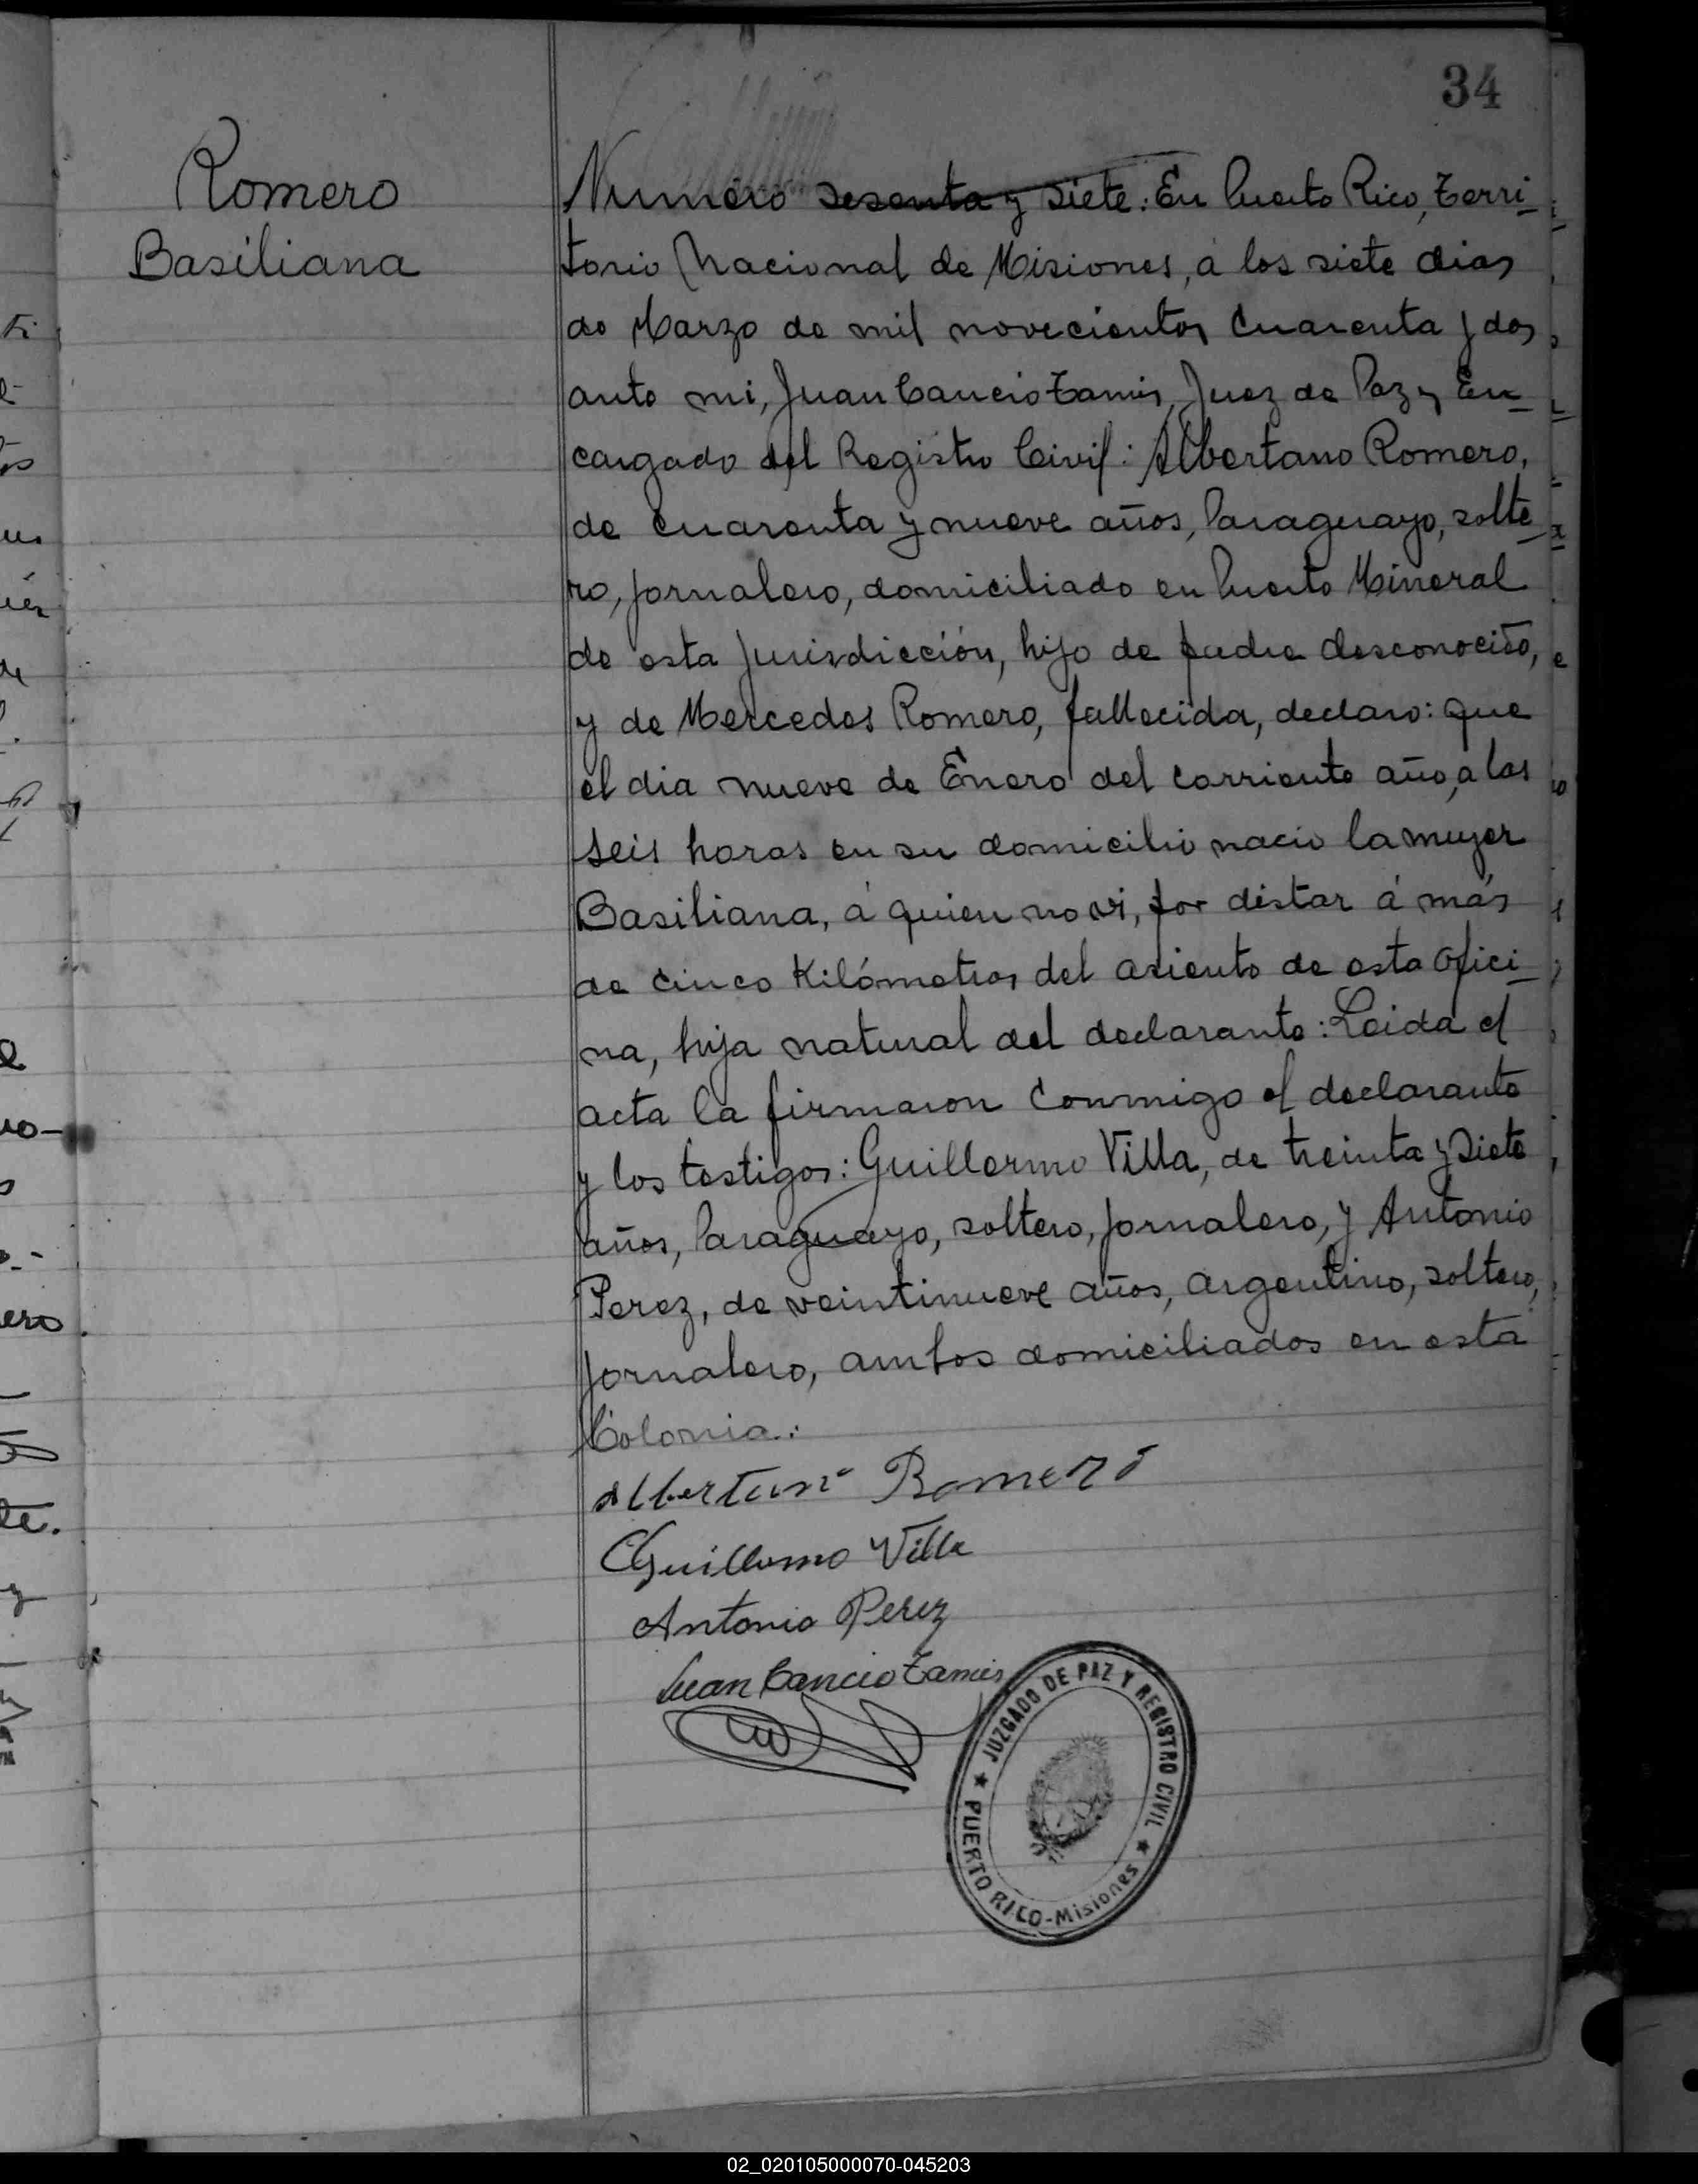 34
Romero
Basiliana
Numero sesenta y siete: En Puerto Rico, Terri-
torio Nacional de Misiones, a los siete dias
de Marzo de mil novecientos cuarenta y dos
ante mi, Juan Cancio Zamis, Juez de Paz y En-
cargado del Registro Civil: Albertano Romero,
de cuarenta y nueve años, Paraguayo, solte-
ro, jornalero, domiciliado en Puerto Mineral
de esta jurisdicción, hijo de padre desconocido,
y de Mercedes Romero, fallecida, declaro: que
el dia nueve de Enero del corriente año, a las
seis horas en su domicilio nacio la mujer
Basiliana, á quien no vi, por distar á más
de cinco Kilómetros del asiento de esta ofici-
na, hija natural del declarante: Leida el
acta la firmaron conmigo el declarante
y los testigos: Guillermo Villa, de treinta y siete
años, Paraguayo, soltero, jornalero, y Antonio
Perez, de veintinueve años, argentino, soltero,
jornalero, ambos domiciliados en esta
Colonia.:
Albertano Romero
Guillermo Villa
Antonio Perez
Juan Cancio Zamis
JUZGADO DE PAZ Y REGISTRO CIVIL
PUERTO RICO-Misiones
02_020105000070-045203